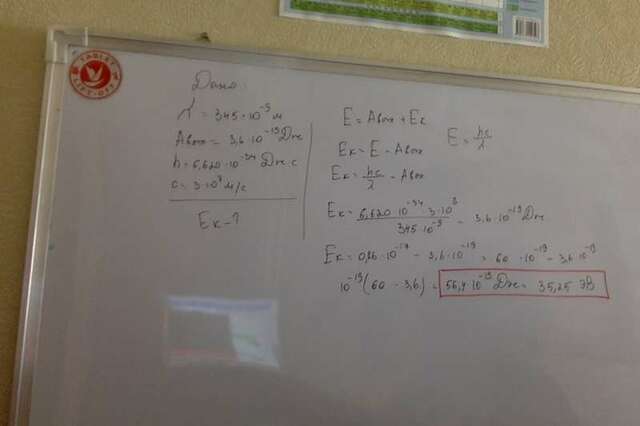 TABLET
LIFT-OFF
Дано:
λ = 345·10⁻⁹ м
Aвых = 3,6·10⁻¹⁹ Дж
h = 6,620·10⁻³⁴ Дж·с
c = 3·10⁸ м/с
Eк - ?
E = Aвых + Eк
Eк = E - Aвых
E = hc/λ
Eк = hc/λ - Aвых
Eк = 6,620·10⁻³⁴·3·10⁸/345·10⁻⁹ - 3,6·10⁻¹⁹ Дж
Eк = 0,06·10⁻¹⁷ - 3,6·10⁻¹⁹ = 60·10⁻¹⁹ - 3,6·10⁻¹⁹
10⁻¹⁹(60 - 3,6) = 56,4·10⁻¹⁹ Дж = 35,25 эВ